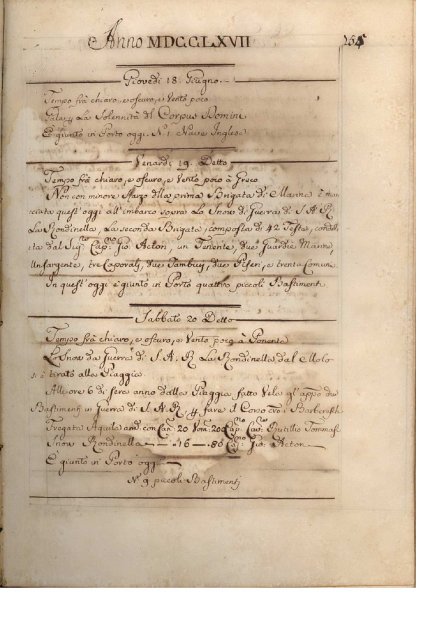 Anno MDCCLXVII
164
Giovedì 18. Giugno
Tempo frà chiaro, e oscuro, e Vento poco
Gala p. La Solennità del Corpus Domini
È giunto in Porto oggi N.° 1 Nave Inglese
Venardì 19. Detto
Tempo frà chiaro, e oscuro, e Vento poco à Greco
Non con minore sfarzo della prima Brigata di Marina
questi oggi all'imbarco sopra Lo Snow di Guerra di S. A. R.
La Rondinella, La seconda Brigata, composta di 42 Teste,
dal Sig.re Cap.no Gio: Acton, un Tenente, due Guardie Marine,
Un Sargente, tre Caporali, due Tamburj, due Pifferi, e trenta Comuni
In quest'oggi è giunto in Porto quattro piccoli Bastimenti
Sabbato 20 Detto
Tempo frà chiaro, e oscuro, e Vento poco à Ponente
Lo Snow da Guerra di S. A. R. La Rondinella dal Molo
si è tirato alla Piaggia
Alle ore 6 di sera anno dalla Piaggia fatto Vela gl'appo
Bastimentj in Guerra di S. A. R. p. fare il Corso Barbereschi
Fregata Aquila con Can: 20 Vom: 20 Cap.no Cav:
Snow Rondinella 16 86 Gio: Acton
È giunto in Porto oggi
N.° 9 piccoli Bastimentj